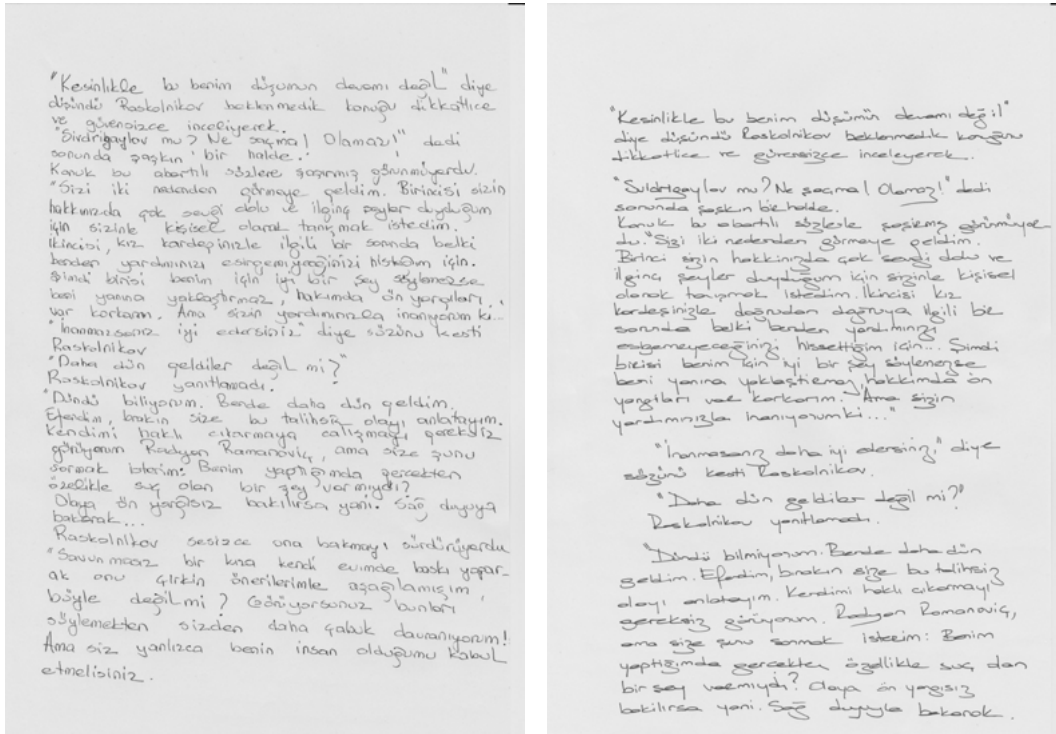 "Kesinlikle bu benim düşümun devamı değil" diye
düşündü Raskolnikov beklenmedik konuğu dikkatlice
ve güvensizce inceliyerek.
"Sivdrigaylov mu? Ne saçma! Olamaz!" dedi
sonunda şaşkın bir halde.
Konuk bu abartılı sözlere şaşırmış görünmüyerdu.
"Sizi iki nedenden görmeye geldim. Birincisi sizin
hakkınızda çok sevgi dolu ve ilginç şeyler duyduğum
için sizinle kişisel olarak tanışmak istedim.
İkincisi, kız kardeşinizle ilgili bir sorunda belki
benden yardımınızı esirgemiyeceğinizi hissettim için.
Şimdi birisi benim için iyi bir şey söylemezse
beni yanına yaklaştırmaz, hakımda ön yargıları
var korkarım. Ama sizin yardımınızla inanıyorum ki...
"İnanmazsanız iyi edersiniz" diye sözünü kesti
Raskolnikov
"Daha dün geldiler değil mi?"
Raskolnikov yanıtlamadı.
"Dündü biliyorum. Bende daha dün geldim.
Efendim, bırakın size bu talihsiz olayı anlatayım.
Kendimi haklı cıkarmaya calışmayı gereksiz
görüyorum Radyon Ramanoviç, ama size şunu
sormak isterim: Benim yaptığımda gercekten
özelikle suç olan bir şey varmıydı?
Olaya ön yargısız bakılırsa yani. Sağ duyuya
bakarak...
Raskolnikov sesizce ona bakmayı sürdürüyerdu
"Savunmasız bir kıza kendi evimde baskı yapar-
ak onu çirkin önerilerimle aşağılamışım,
böyle değil mi? Görüyorsunuz bunları
söylemekten sizden daha çabuk davranıyorum!
Ama siz yanlızca benin insan olduğumu kabul
etmelisiniz.
"Kesinlikle bu benim düşümün devamı değil"
diye düşündü Raskolnikov beklenmedik konuğunu
dikkatlice ve güvensizce inceleyerek.
"Suldrigaylov mu? Ne saçma! Olamaz!" dedi
sonunda şaşkın bir halde.
Konuk bu abartılı sözlerle şaşırmış görünmüyor
du. "Sizi iki nedenden görmeye geldim.
Birinci sizin hakkınızda çok sevgi dolu ve
ilginç şeyler duyduğum için sizinle kişisel
olarak tanışmak istedim. İkincisi kız
kardeşinizle doğrudan doğruya ilgili bir
sorunda belki benden yardımınızı
esirgemeyeceğinizi hissettiğim için... Şimdi
birisi benim için iyi bir şey söylemezse
beni yanına yaklaştırmaz, hakkımda ön
yargıları var korkarım. Ama sizin
yardımınızla inanıyorum ki..."
"İnanmasanız daha iyi edersiniz" diye
sözünü kesti Raskolnikov.
"Daha dün geldiler değil mi?"
Raskolnikov yanıtlamadı.
"Dündü bilmiyorum. Bende daha dün
geldim. Efedim, bırakın size bu talihsiz
olayı anlatayım. Kendimi haklı cıkarmayı
gereksiz görüyorum. Radyon Romanoviç,
ama size şunu sormak isterim: Benim
yaptığımda gercekten özellikle suç olan
bir şey varmıydı? Olaya ön yargısız
bakılırsa yani. Sağ duyuyla bakarak.